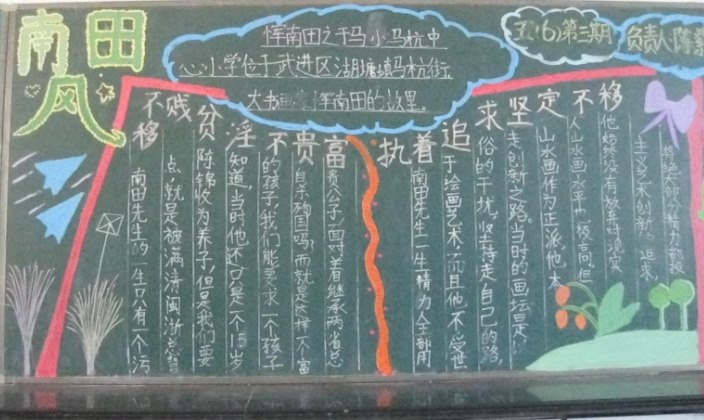 南田
风
恽南田之于马小 马杭中
心小学位于武进区湖塘镇马杭街.
大书画家恽南田的故里.
五(6)第三期
负责人陈
富贵不淫贫贱不移
南田先生的一生只有一个污
点,就是被满清闽浙总督
陈锦收为养子,但是我们要
知道,当时他还只是一个15岁
的孩子,我们能要求一个孩子
自杀殉国吗,而就是这样不富
贵公子,面对着继承两省总
执着追求坚定不移
南田先生一生精力全部用
于绘画艺术,而且他不受世
俗的干扰,坚持走自己的路,
走创新之路,当时的画坛是以
山水画作为正派,他本
人山水画水平也极高,但
他始终没有放弃对现实
主义艺术创新 追求,
将绝大部分精力都投